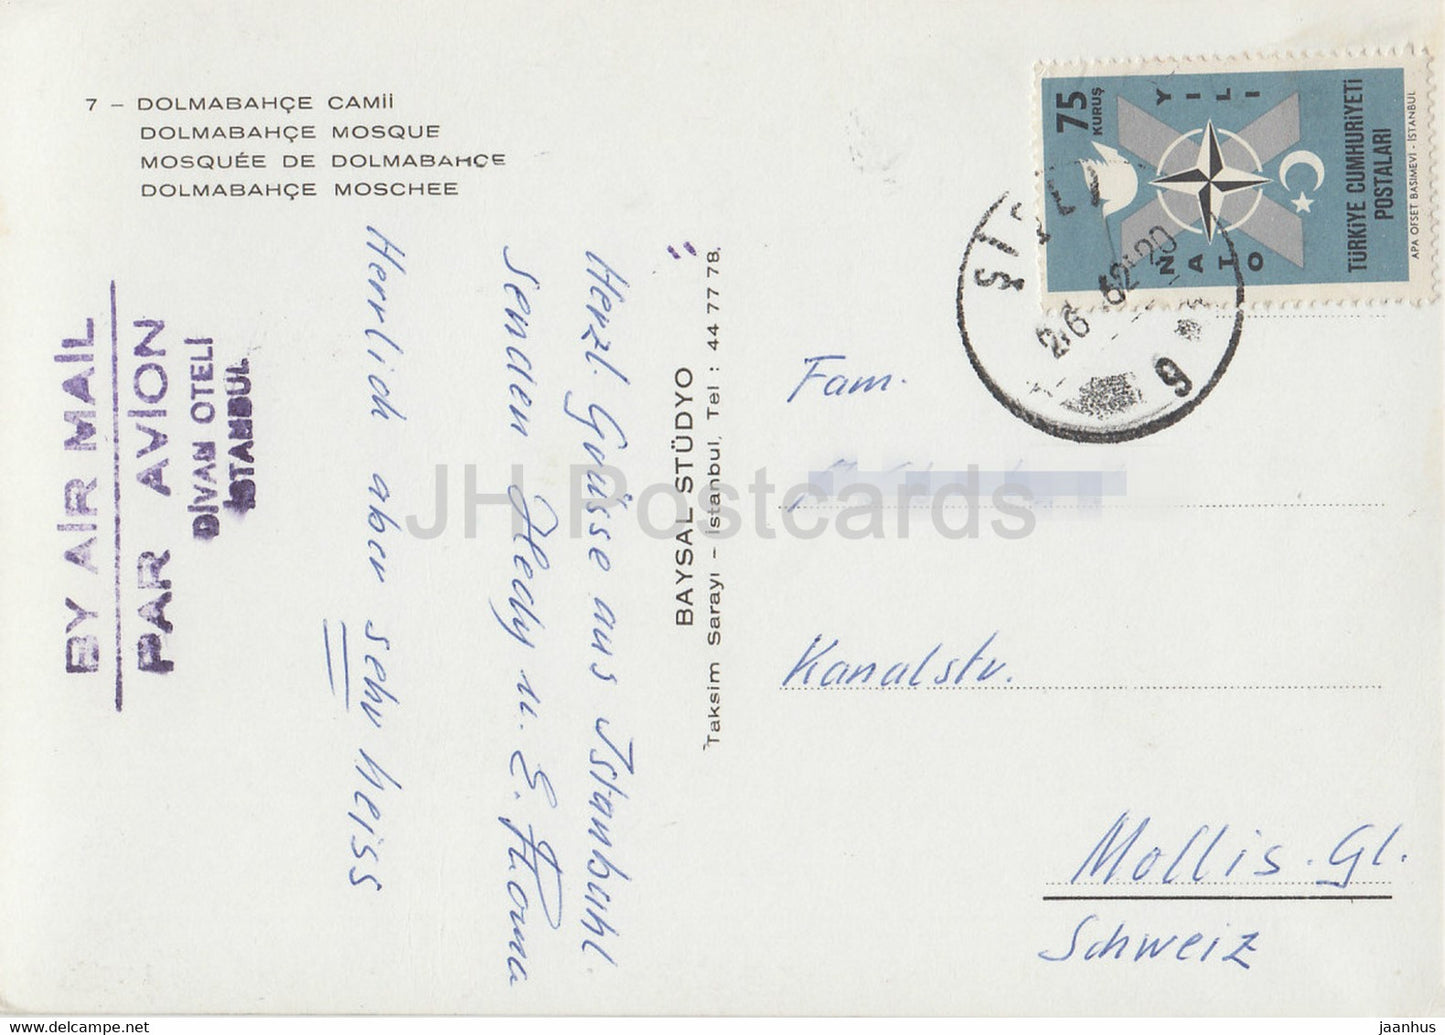 7 – DOLMABAHÇE CAMİİ
DOLMABAHÇE MOSQUE
MOSQUÉE DE DOLMABAHÇE
DOLMABAHÇE MOSCHEE
BY AİR MAİL
PAR AVİON
DİVAN OTELİ
İSTANBUL
Herzl. Grüsse aus Istanbuhl.
Senden Hedy u. E.
Herrlich aber sehr heiss
BAYSAL STÜDYO
Taksim Sarayı – İstanbul, Tel : 44 77 78.
75
KURUŞ
NATO
YILI
TÜRKİYE CUMHURİYETİ
POSTALARI
APA OFSET BASIMEVİ - İSTANBUL
ŞİŞLİ
26 62 20
9
Fam.
Kanalstr.
Mollis. Gl.
Schweiz
JH Postcards
jaanhus @ delcampe.net